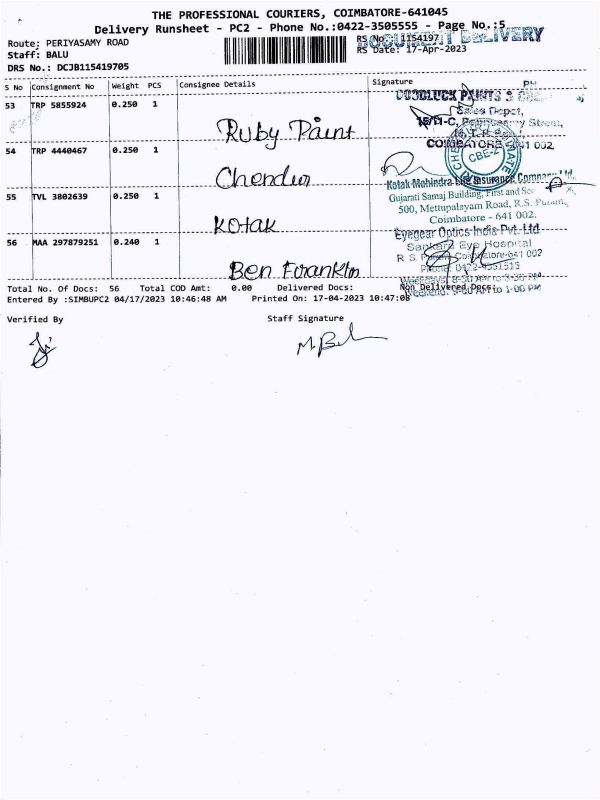 THE PROFESSIONAL COURIERS, COIMBATORE-641045
Delivery Runsheet - PC2 - Phone No.:0422-3505555 - Page No.:5
DOCUMENT DELIVERY
Route: PERIYASAMY ROAD
RS No.: 1154197
Staff: BALU
RS Date: 17-Apr-2023
DRS No.: DCJB115419705
S No Consignment No Weight PCS Consignee Details Signature
53 TRP 5855924 0.250 1 Ruby Paint
GOODLUCK PAINTS &
Sales Depot,
Street,
COIMBATORE 641 002.
54 TRP 4440467 0.250 1 Chendur
CBE-2
Kotak Mahindra Life Insurance Company Ltd.
55 TVL 3802639 0.250 1 Kotak
Gujarati Samaj Building, First and
500, Mettupalayam Road, R.S. Puram,
Coimbatore - 641 002.
56 MAA 297879251 0.240 1 Ben Franklin
Eyegear Optics India Pvt. Ltd.
Sankara Eye Hospital
R S Coimbatore-641 002
Phone: 0422-4551515
Total No. Of Docs: 56 Total COD Amt: 0.00 Delivered Docs: Non Delivered Docs:
Entered By :SIMBUPC2 04/17/2023 10:46:48 AM Printed On: 17-04-2023 10:47:08
Verified By Staff Signature